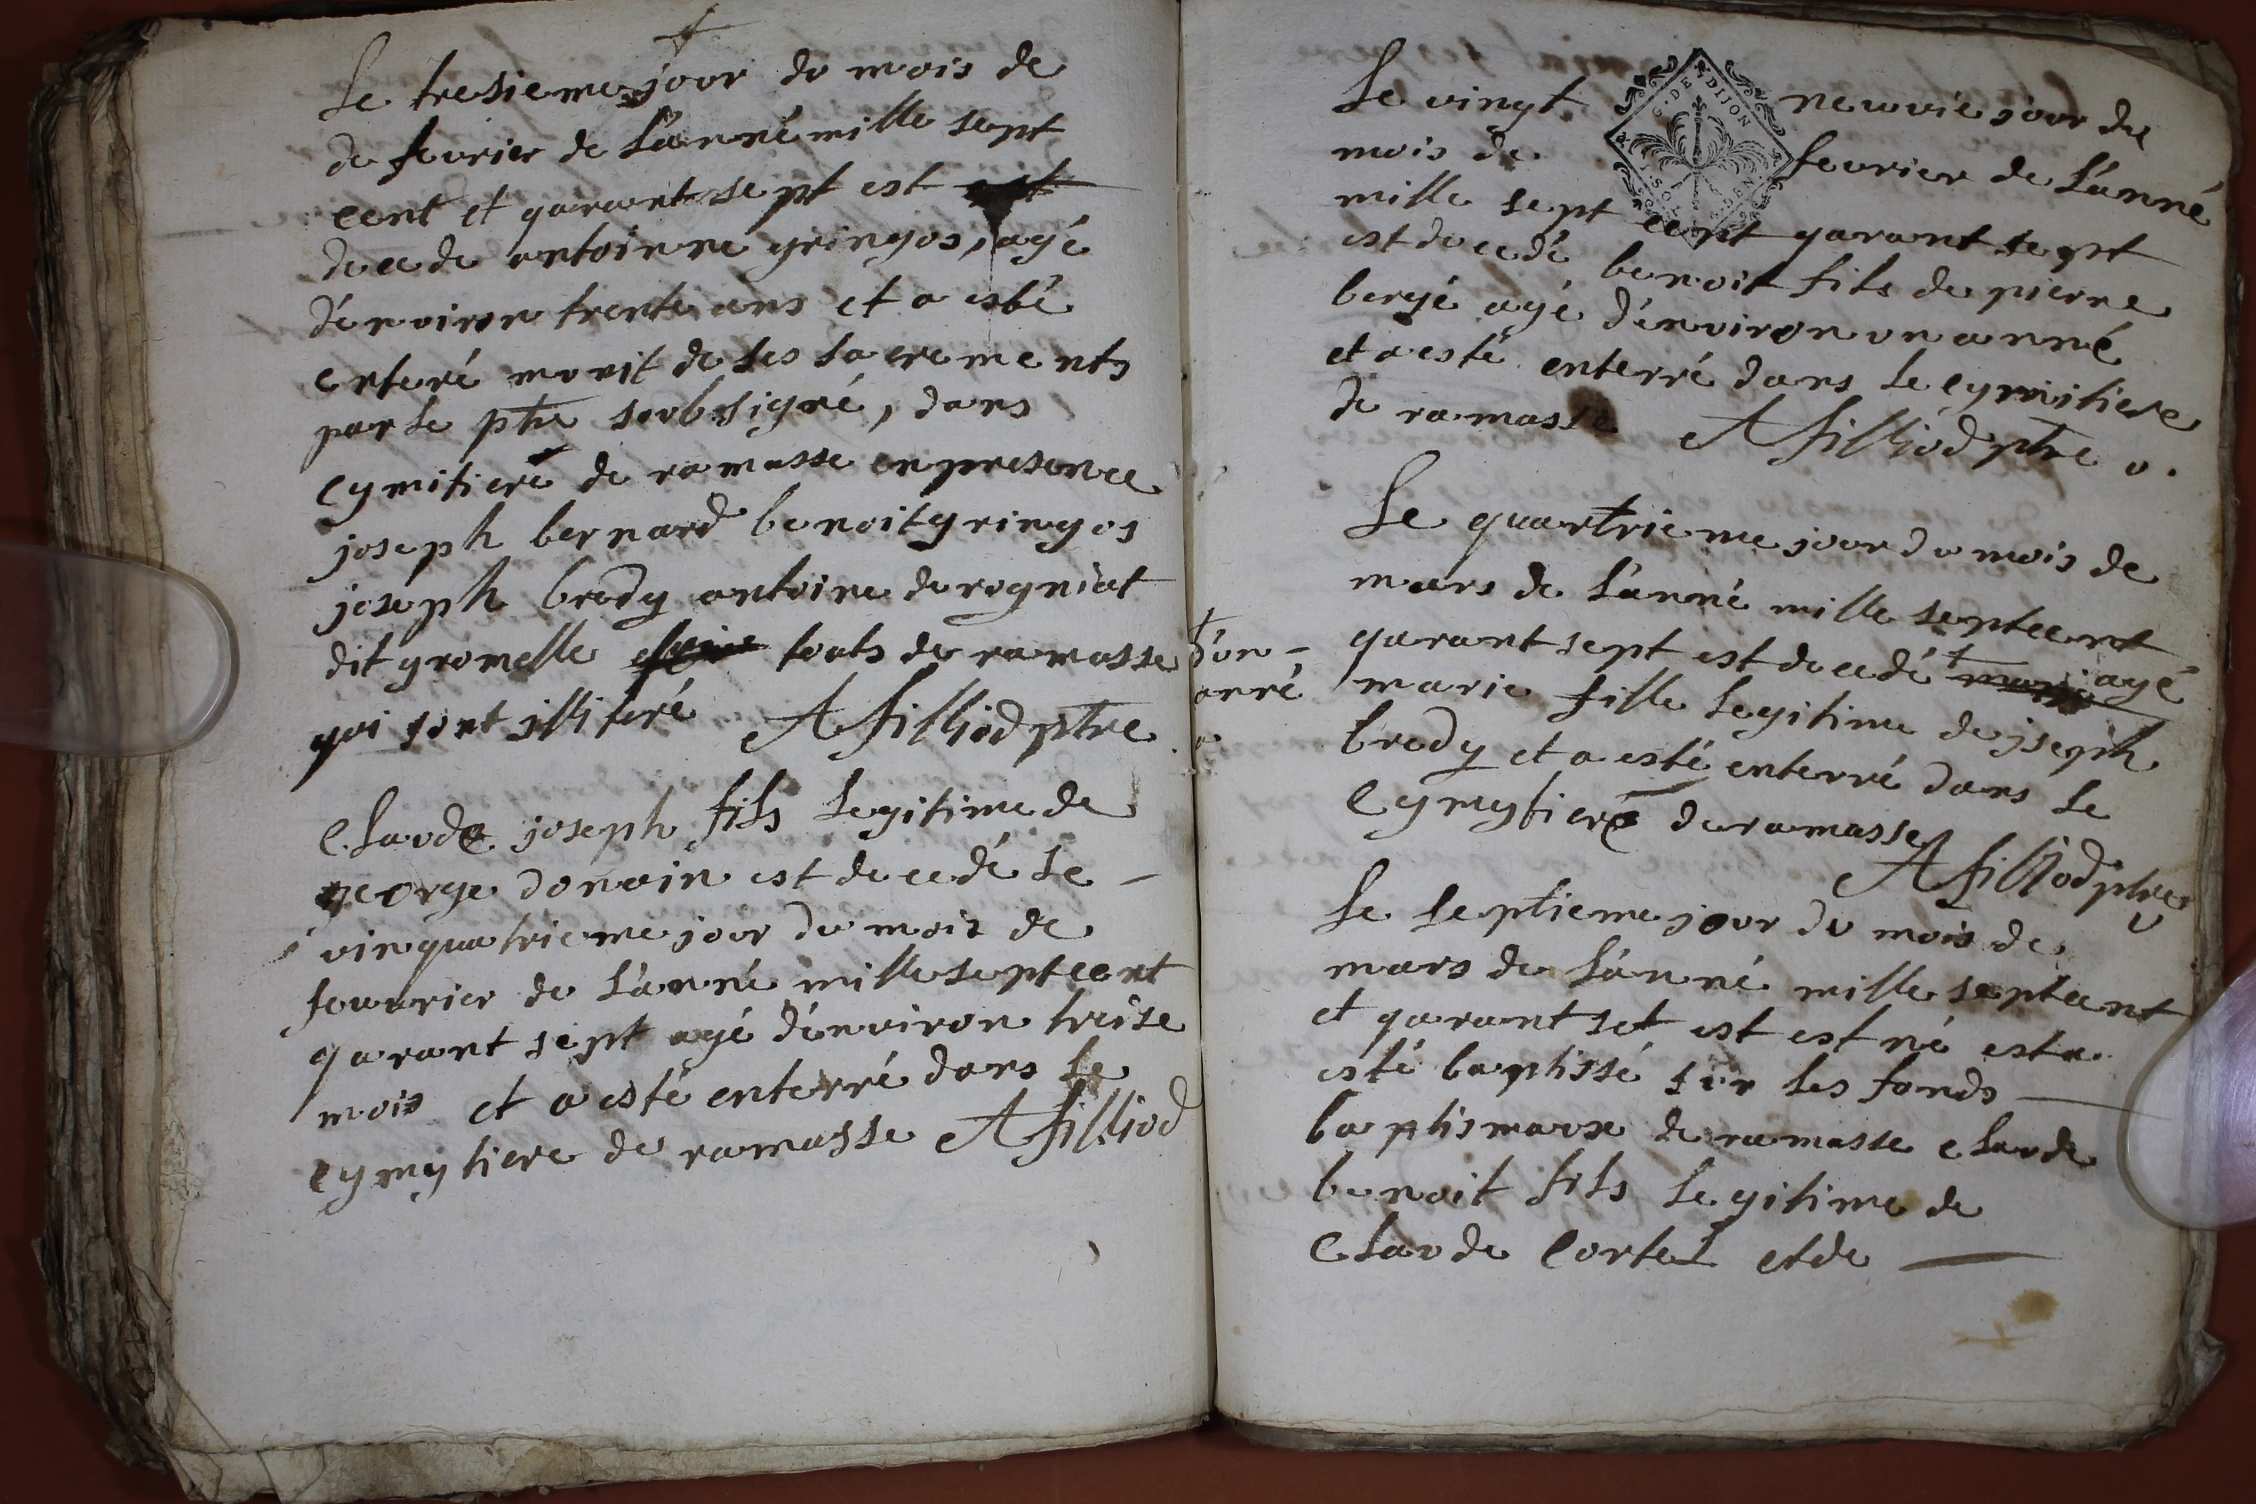 Le tresieme jour du mois de
de fevrier de l'anné mille sept
cent et quarant sept est
decede antoinne gringos, agé
d'environ trente ans et a esté
enteré munit de ses sacrements
par le ptre soubsigné, dans
cymitiere de ramasse en presence
joseph bernard benoit gringos
joseph brody antoine derogniat
dit gromelle touts de ramasse
qui sont illiteré A filliod ptre
Claude joseph fils legitime de
george donvin est decedé le
vinquatrieme jour du mois de
fevvrier de l'anné mille septcent
qarant sept agé d'environ treise
mois et a esté enterré dans le
cymytiere de ramasse A filliod
Le vingt neuvie jour du
mois de fevrier de l'anné
mille sept cent qarant sept
est decedé benoit fils de pierre
bergé agé d'environ un anné
et a esté enterré dans le cymitiere
de ramasse A filliod ptre
G. DE DIJON
Le quartrieme jour du mois de
mars de l'anné mille septcent
qarant sept est decedé + agé
+ d'un
anné
marie fille legitime de jseph
brody et a esté enterré dans le
cymytiere de ramasse
A filliod ptre
Le septieme jour du mois de
mars de l'anné mille septcent
et qarant set est est né est a
esté baptissé sur les fonds
baptismaux de ramasse claude
benoit fils legitime de
Claude Cortel et de